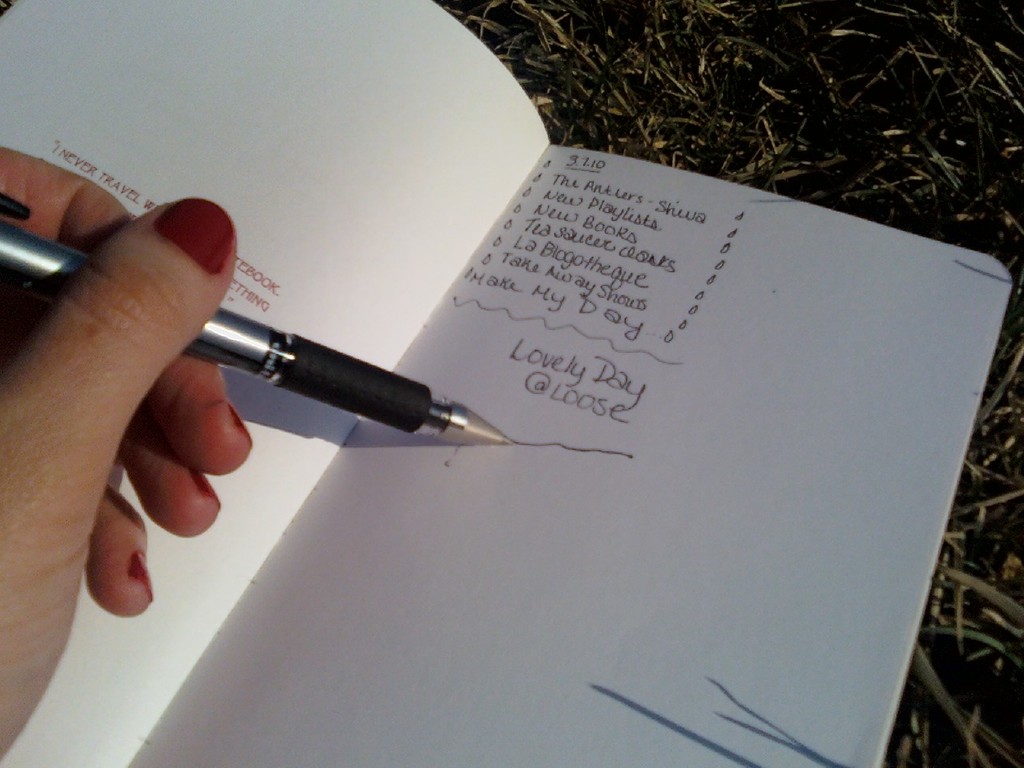 "I NEVER TRAVEL W
TEBOOK.
ETHING
"
3.7.10
The Antlers - Shiva
New Playlists
New Books
Tea saucer
La Blogotheque
Take Away Shows
Make My Day...
Lovely Day
@Loose